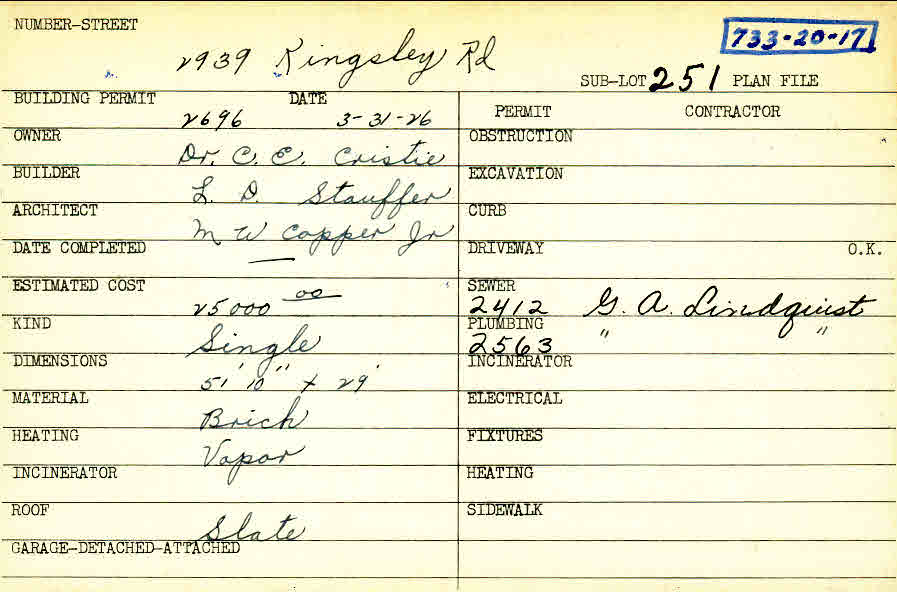 NUMBER-STREET
733-20-17
2939 Kingsley Rd
SUB-LOT 251 PLAN FILE
BUILDING PERMIT DATE
2696 3-31-26
PERMIT CONTRACTOR
OWNER
Dr. C. E. Cristie
OBSTRUCTION
BUILDER
L. D. Stauffer
EXCAVATION
ARCHITECT
M W Copper Jr
CURB
DATE COMPLETED
—
DRIVEWAY O.K.
ESTIMATED COST
25000 00
SEWER
2412 G. A. Lindquist
KIND
Single
PLUMBING
2563 " "
DIMENSIONS
51' 10" x 29'
INCINERATOR
MATERIAL
Brick
ELECTRICAL
HEATING
Vapor
FIXTURES
INCINERATOR
HEATING
ROOF
Slate
SIDEWALK
GARAGE-DETACHED-ATTACHED